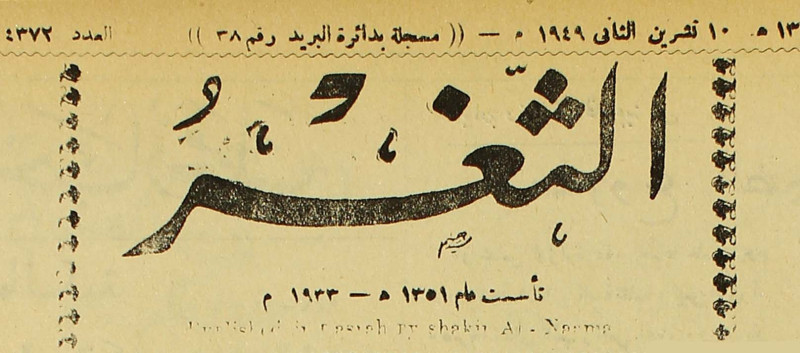 ١٣ هـ ١٠ تشرين الثاني ١٩٤٩ م — (( مسجلة بدائرة البريد رقم ٣٨ )) العدد ٤٣٧٢
الثَّغْرُ
تأسست عام ١٣٥١ هـ — ١٩٣٣ م
Published in Basrah by shakir AL - Neema